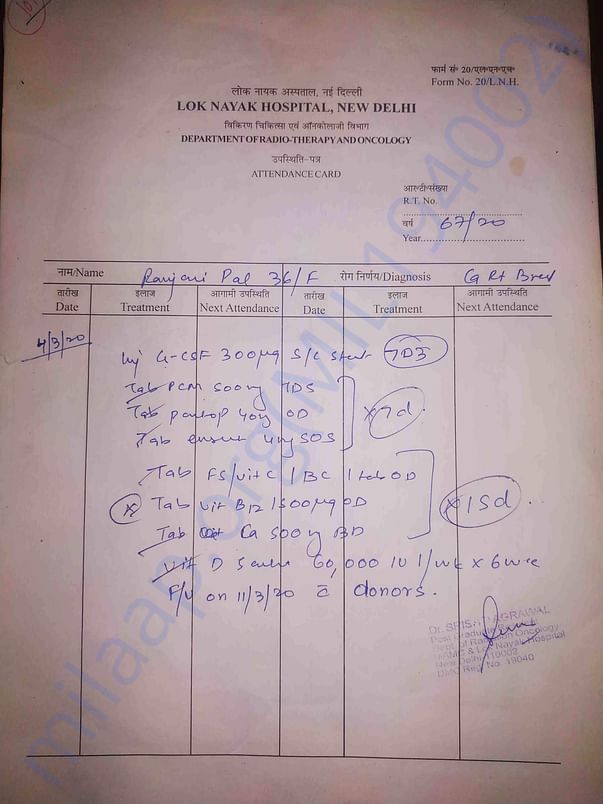 101
फार्म सं॰ 20/एल॰एन॰एच॰
Form No. 20/L.N.H.
लोक नायक अस्पताल, नई दिल्ली
LOK NAYAK HOSPITAL, NEW DELHI
विकिरण चिकित्सा एवं ऑनकोलाजी विभाग
DEPARTMENT OF RADIO-THERAPY AND ONCOLOGY
उपस्थिति-पत्र
ATTENDANCE CARD
आर॰टी॰संख्या
R.T. No.
वर्ष 67/20
Year
नाम/Name Ranjani Pal 36/F रोग निर्णय/Diagnosis Ca Rt Breast
तारीख इलाज आगामी उपस्थिति तारीख इलाज आगामी उपस्थिति
Date Treatment Next Attendance Date Treatment Next Attendance
4/3/20
Inj G-CSF 300µg S/C start
Tab PCM 500mg TDS
Tab pantop 40mg OD x 7d.
Tab 4mg SOS
Tab FS/Vit C / BC 1 tab OD
Tab Vit B12 1500µg OD x 15d
Tab Ca 500mg BD
Vit D 60,000 IU 1/wk x 6
F/U on 11/3/20 c̄ donors.
Dr. AGRAWAL
Post Graduate
Dept. of Radiation Oncology
MAMC & Lok Nayak Hospital
New Delhi-110002
DMC Reg. No. 19040
milaap.org(MIL1940021)